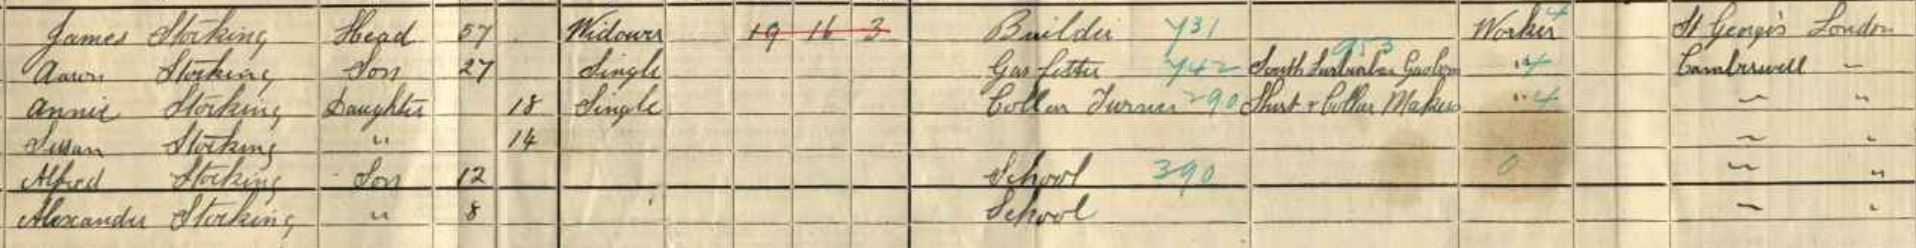 James Stocking Head 57 Widower 19 16 3 Builder 731 Worker 4 St George's London
Aaron Stocking Son 27 Single Gas fitter 742 South Suburban Gas 953 " 4 Camberwell "
Annie Stocking Daughter 18 Single Collar Turner 290 Shirt & Collar Makers " 4 " "
Susan Stocking " 14 " "
Alfred Stocking Son 12 School 390 0 " "
Alexander Stocking " 8 School " "